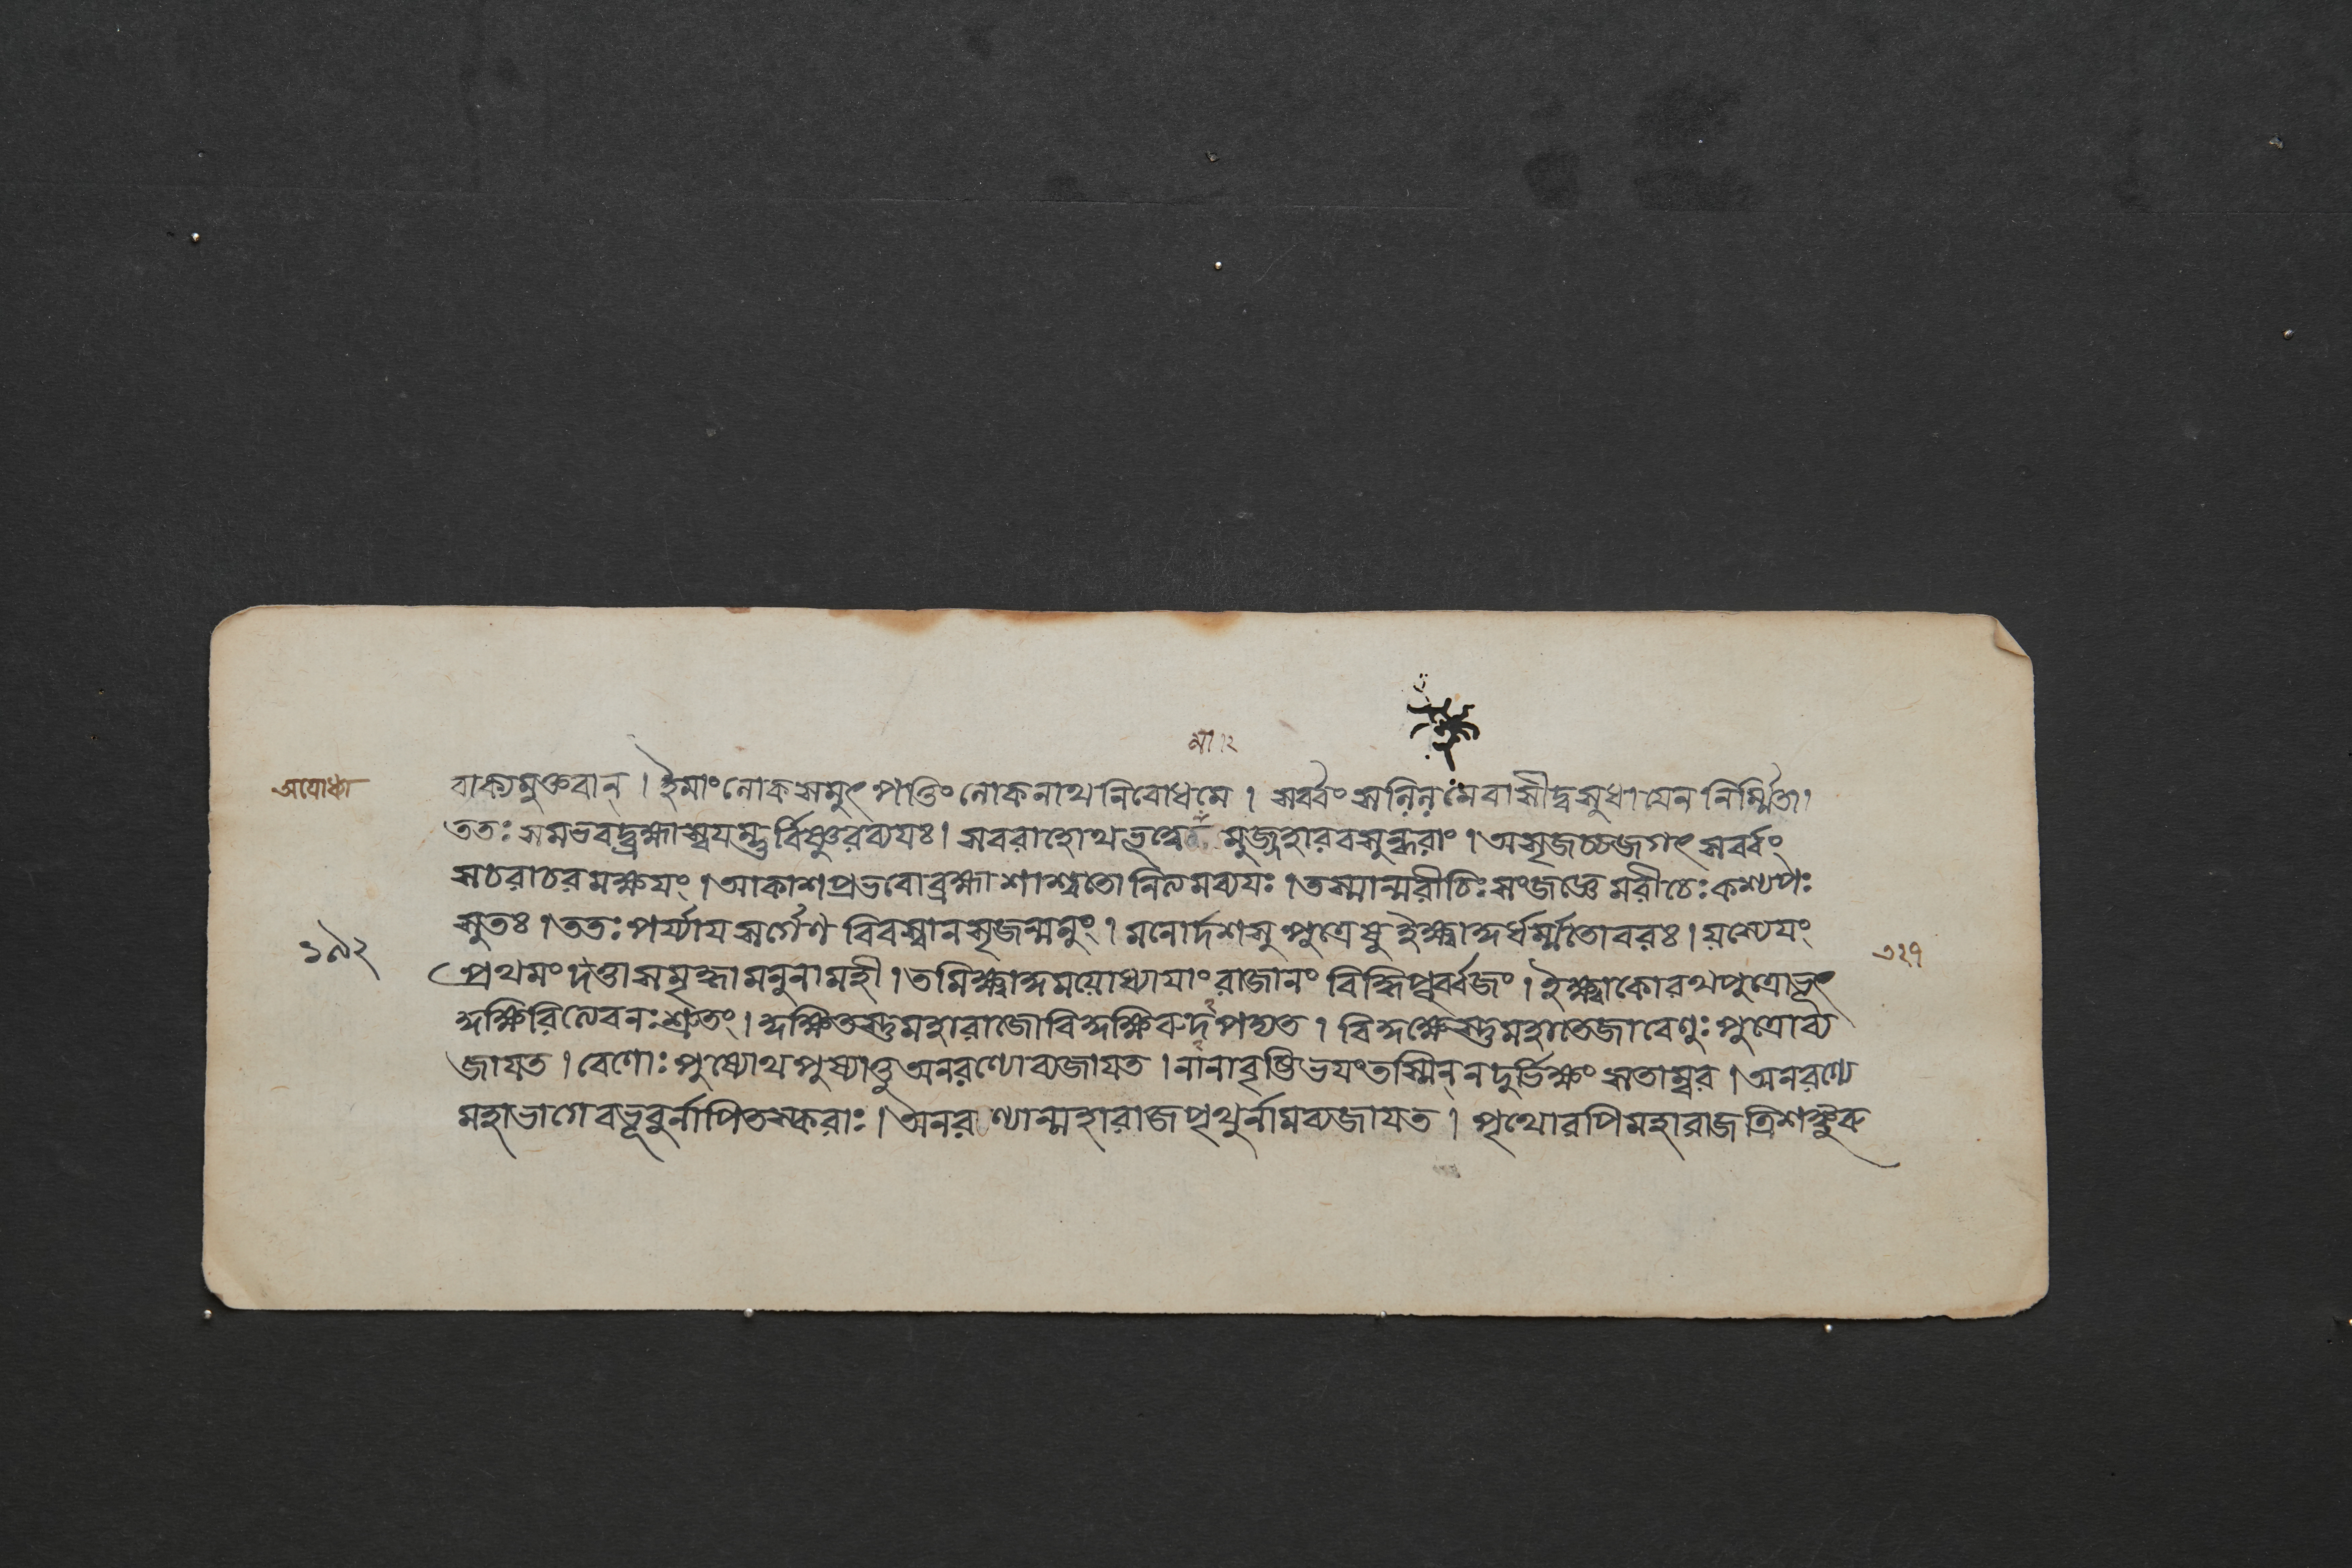 মা ২
অযোধ্যা
বাক্যমুক্তবান্ । ইমাং লোকসমুৎপত্তিং লোকনাথনিবোধমে । সর্ব্বং সলিলমেবাসীদ্বসুধা যেন নির্ম্মিতা ।
ততঃ সমভবদ্ব্রহ্মাস্বযম্ভুর্বিষ্ণুরব্যযঃ । সবরাহোথভূত্বে মুজ্জহারবসুন্ধরাং । অসৃজচ্চজগৎ সর্ব্বং
সচরাচরমক্ষযং । আকাশপ্রভবোব্রহ্মাশাশ্বতোনিত্যমব্যযঃ । তস্মান্মরীচিঃ সংজজ্ঞে মরীচেঃ কশ্যপঃ
সুতঃ । ততঃ পর্য্যাযসর্গেণ বিবস্বানসৃজন্মনুং । মনোর্দশসুপুত্রেষু ইক্ষ্বাকুর্ধর্ম্মতোবরঃ । যস্যেযং
১৯২
৩২৭
প্রথমং দত্তাসমৃদ্ধামনুনামহী । তমিক্ষ্বাকুমযোধ্যাযাং রাজানং বিদ্ধিপূর্ব্বজং । ইক্ষ্বাকোরথপুত্রোভূৎ
কুক্ষিরিত্যেবনঃ শ্রুতং । কুক্ষিতস্তুমহারাজোবিকুক্ষিরুদপদ্যত । বিকুক্ষেস্তুমহাতেজাবেণুঃ পুত্রোব্য
জাযত । বেণোঃ পুষ্যোথপুষ্যাত্তু অনরণ্যোব্যজাযত । নানাবৃষ্টিভযংতস্মিন্ নদুর্ভিক্ষং সতাম্বর । অনরণ্যে
মহাভাগেবভূবুর্নাপিতস্করাঃ । অনরণ্যান্মহারাজপৃথুর্নামব্যজাযত । পৃথোরপিমহারাজত্রিশঙ্কুরু